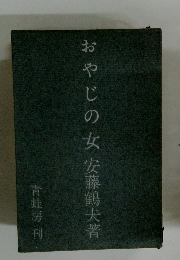 おやじの女 安藤鶴夫著
青蛙房刊